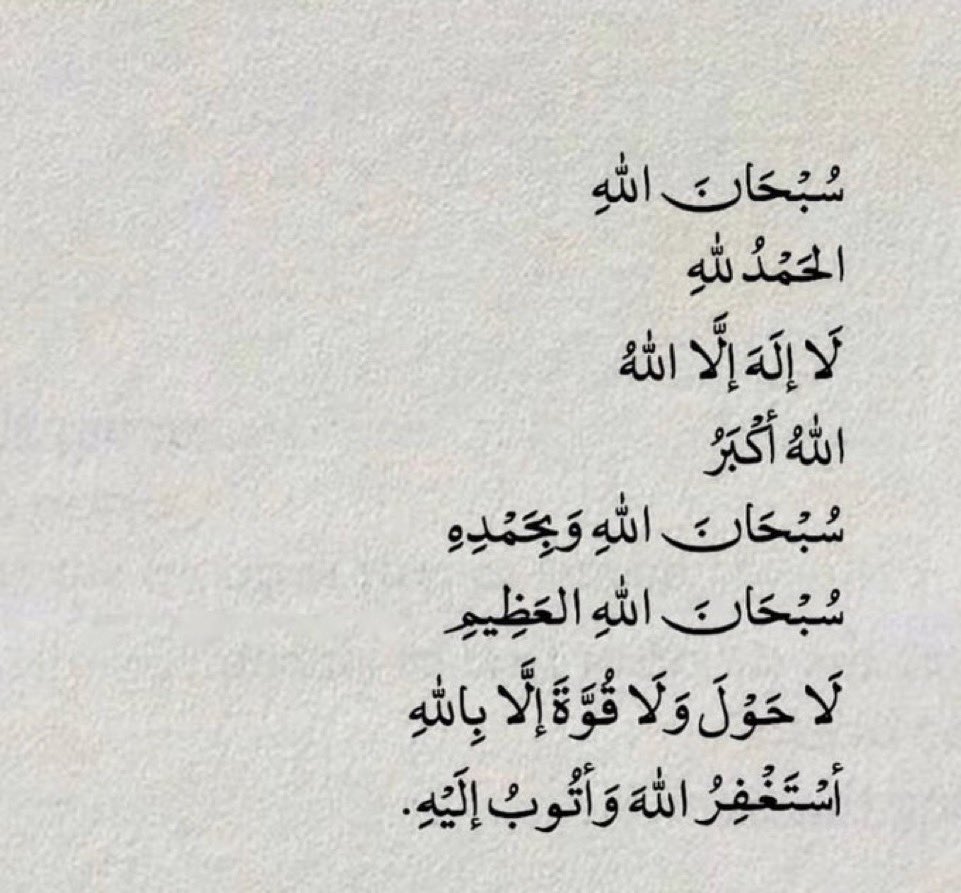 سُبْحَانَ اللهِ
الحَمْدُ للهِ
لَا إِلَهَ إِلَّا اللهُ
اللهُ أَكْبَرُ
سُبْحَانَ اللهِ وَبِحَمْدِهِ
سُبْحَانَ اللهِ العَظِيمِ
لَا حَوْلَ وَلَا قُوَّةَ إِلَّا بِاللهِ
أَسْتَغْفِرُ اللهَ وَأَتُوبُ إِلَيْهِ.